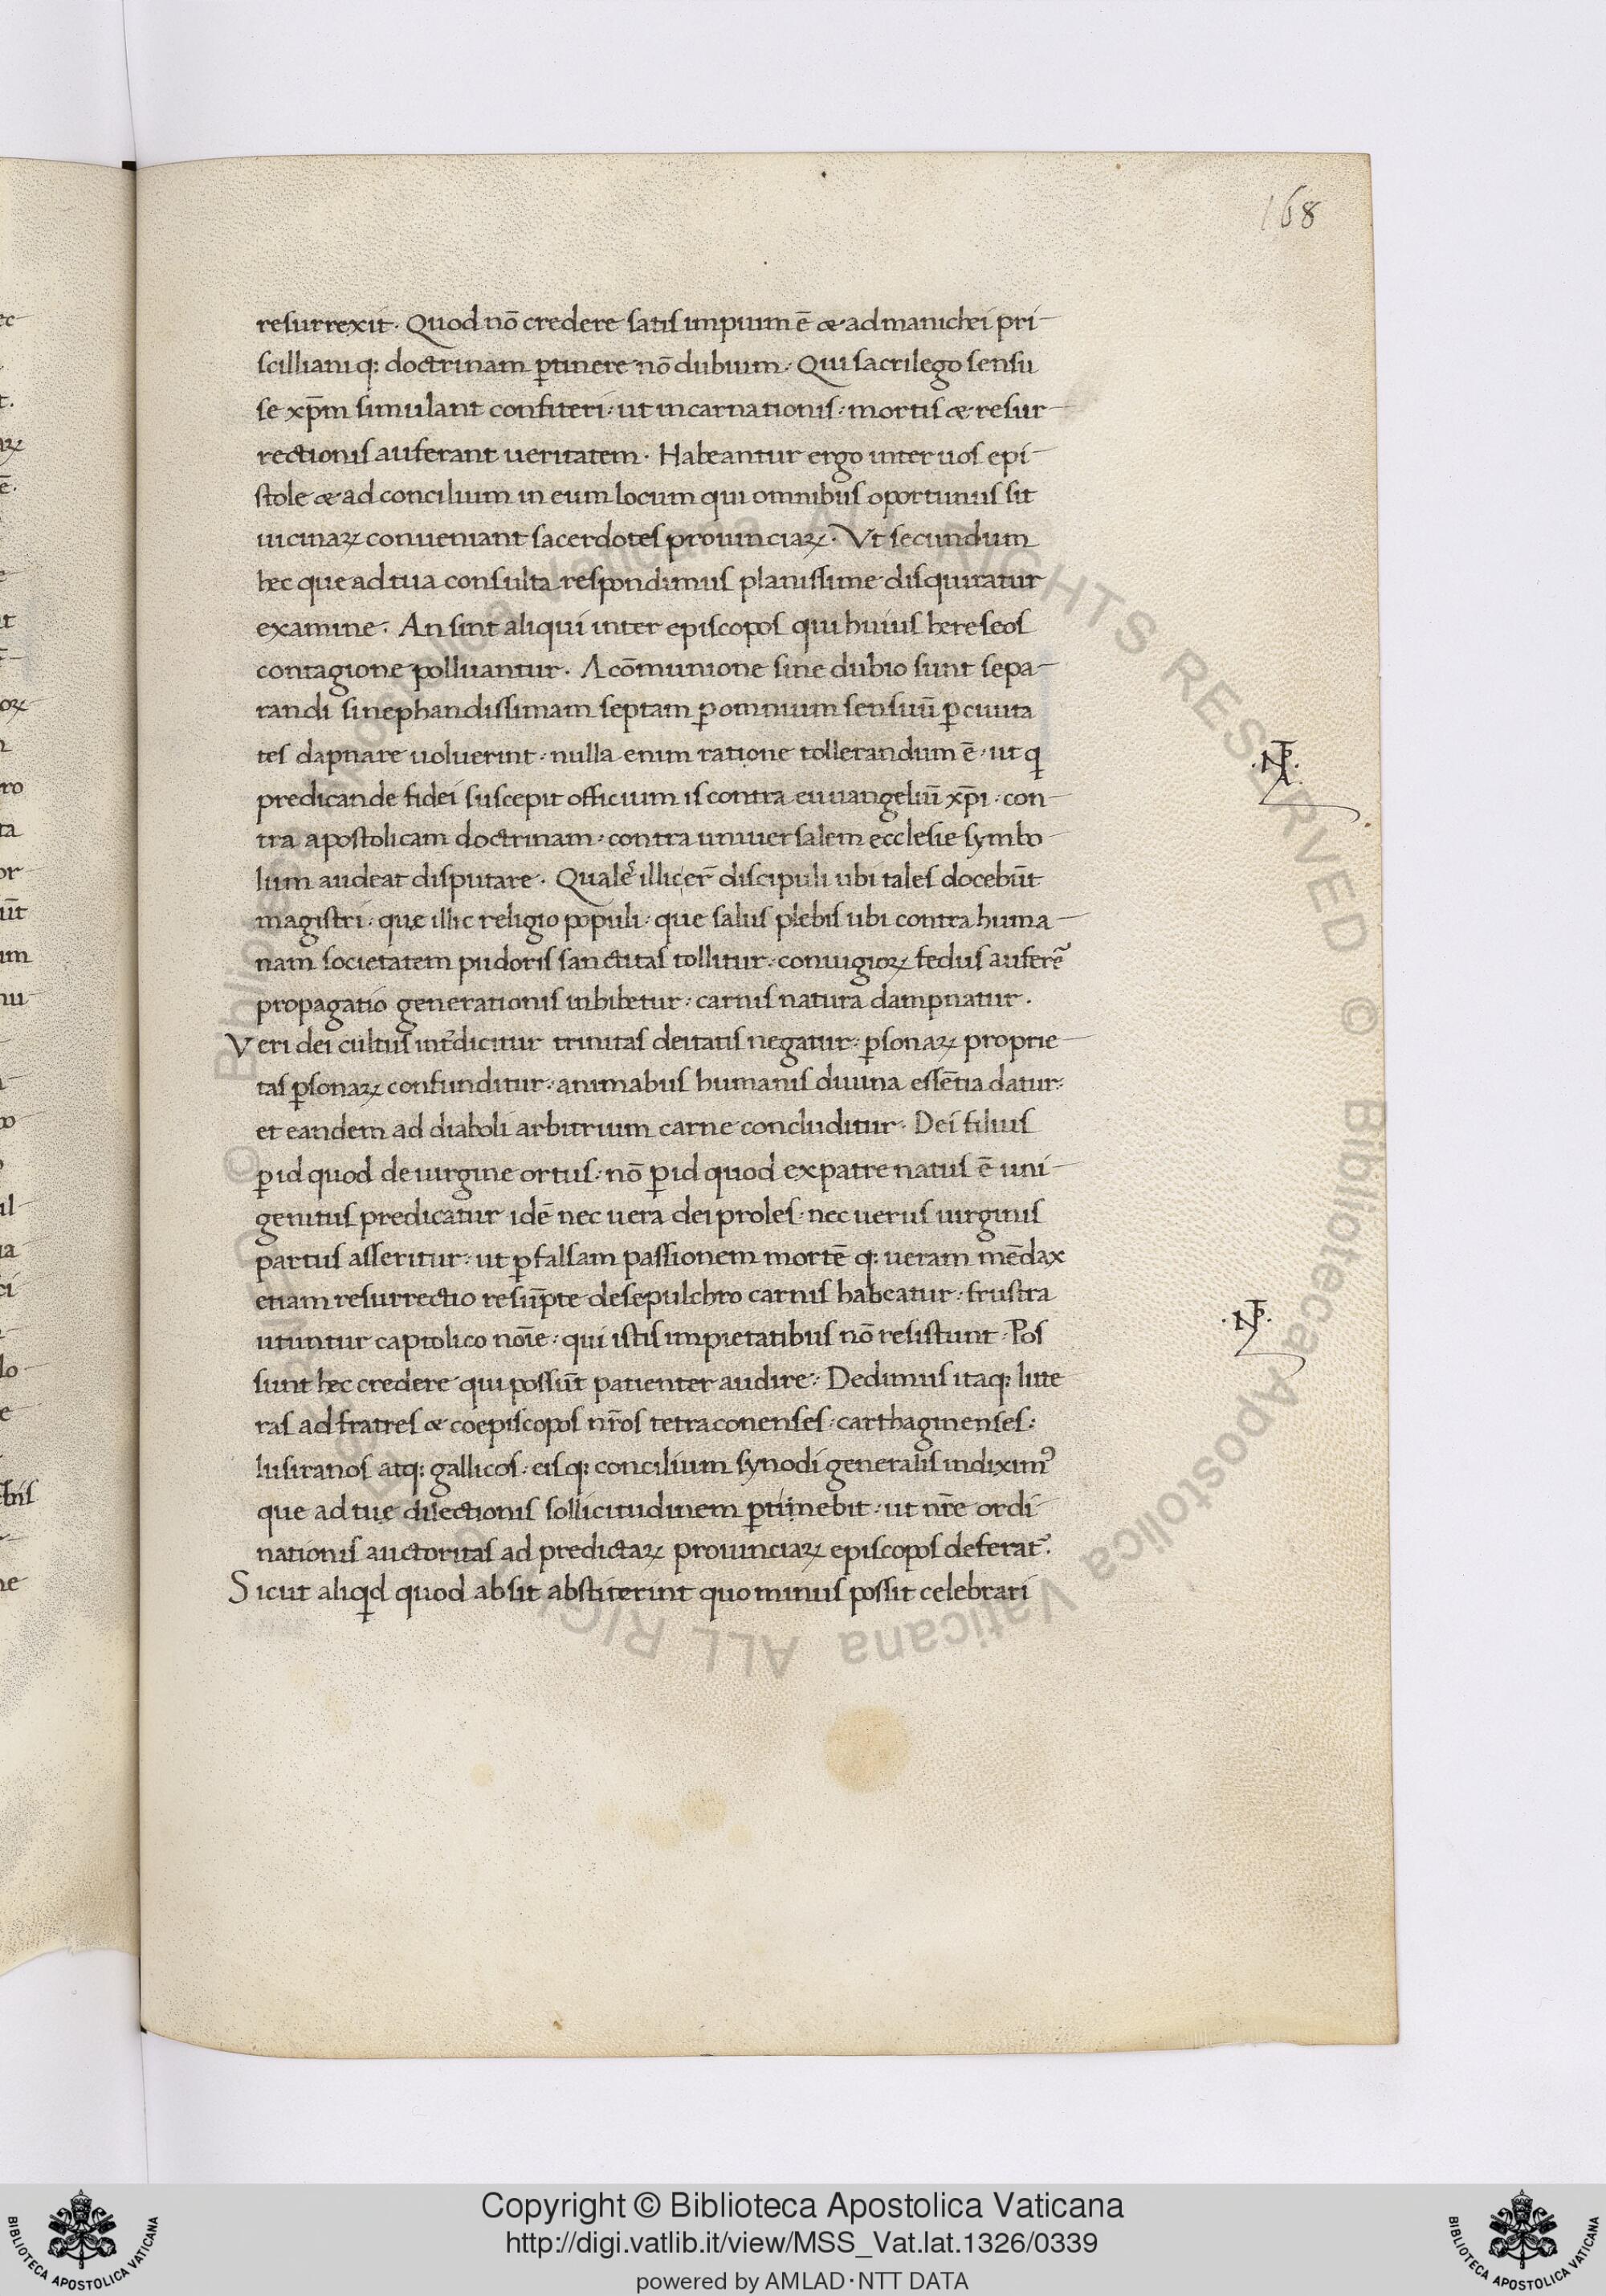 168
resurrexit. Quod nō credere satis impium ē & ad manichei pri-
scilliani q: doctrinam ꝑtinere nō dubium. Qui sacrilego sensu
se xp̄m simulant confiteri: ut incarnationis: mortis & resur-
rectionis auferant ueritatem. Habeantur ergo inter uos epi-
stole & ad concilium in eum locum qui omnibus oportunus sit
uicinaꝝ conueniant sacerdotes prouinciaꝝ. Vt secundum
hec que ad tua consulta respondimus planissime disquiratur
examine. An sint aliqui inter episcopos qui huius hereseos
contagione polluantur. A cōmunione sine dubio sunt sepa-
randi si nephandissimam septam ꝑ omnium sensuū ꝑ ciuita
tes dapnare uoluerint: nulla enim ratione tollerandum ē: ut q
predicande fidei suscepit officium is contra euuangeliū xp̄i: con-
tra apostolicam doctrinam: contra uniuersalem ecclesie symbo-
lium audeat disputare. Quale illic er̄ discipuli ubi tales docebūt
magistri: que illic religio populi: que salus plebis ubi contra huma-
nam societatem pudoris sanctitas tollitur: coniugioꝝ fedus auferē
propagatio generationis inhibetur: carnis natura dampnatur.
Veri dei cultus int̄dicitur trinitas deitatis negatur: ꝑsonaꝝ proprie-
tas ꝑsonaꝝ confunditur: animabus humanis diuina essētia datur:
et eandem ad diaboli arbitrium carne concluditur. Dei filius
ꝑ id quod de uirgine ortus: nō ꝑ id quod ex patre natus ē uni-
genitus predicatur idē nec uera dei proles: nec uerus uirginis
partus asseritur: ut ꝑ falsam passionem mortē q: ueram mēdax
etiam resurrectio resūpte de sepulchro carnis habeatur: frustra
utuntur captolico noīe: qui istis impietatibus nō resistunt. Pos
sunt hec credere qui possūt patienter audire: Dedimus itaq: litte
ras ad fratres & coepiscopos nr̄os tetraconenses: carthaginenses:
lusitanos atq: gallicos: eisq: concilium synodi generalis indiximꝰ
que ad tue dilectionis sollicitudinem ꝑtinebit: ut nr̄e ordi-
nationis auctoritas ad predictaꝝ prouinciaꝝ episcopos deferat:
Sicut aliqd quod absit abstiterint quo minus possit celebrari
Copyright © Biblioteca Apostolica Vaticana
http://digi.vatlib.it/view/MSS_Vat.lat.1326/0339
powered by AMLAD·NTT DATA
BIBLIOTECA APOSTOLICA VATICANA
BIBLIOTECA APOSTOLICA VATICANA